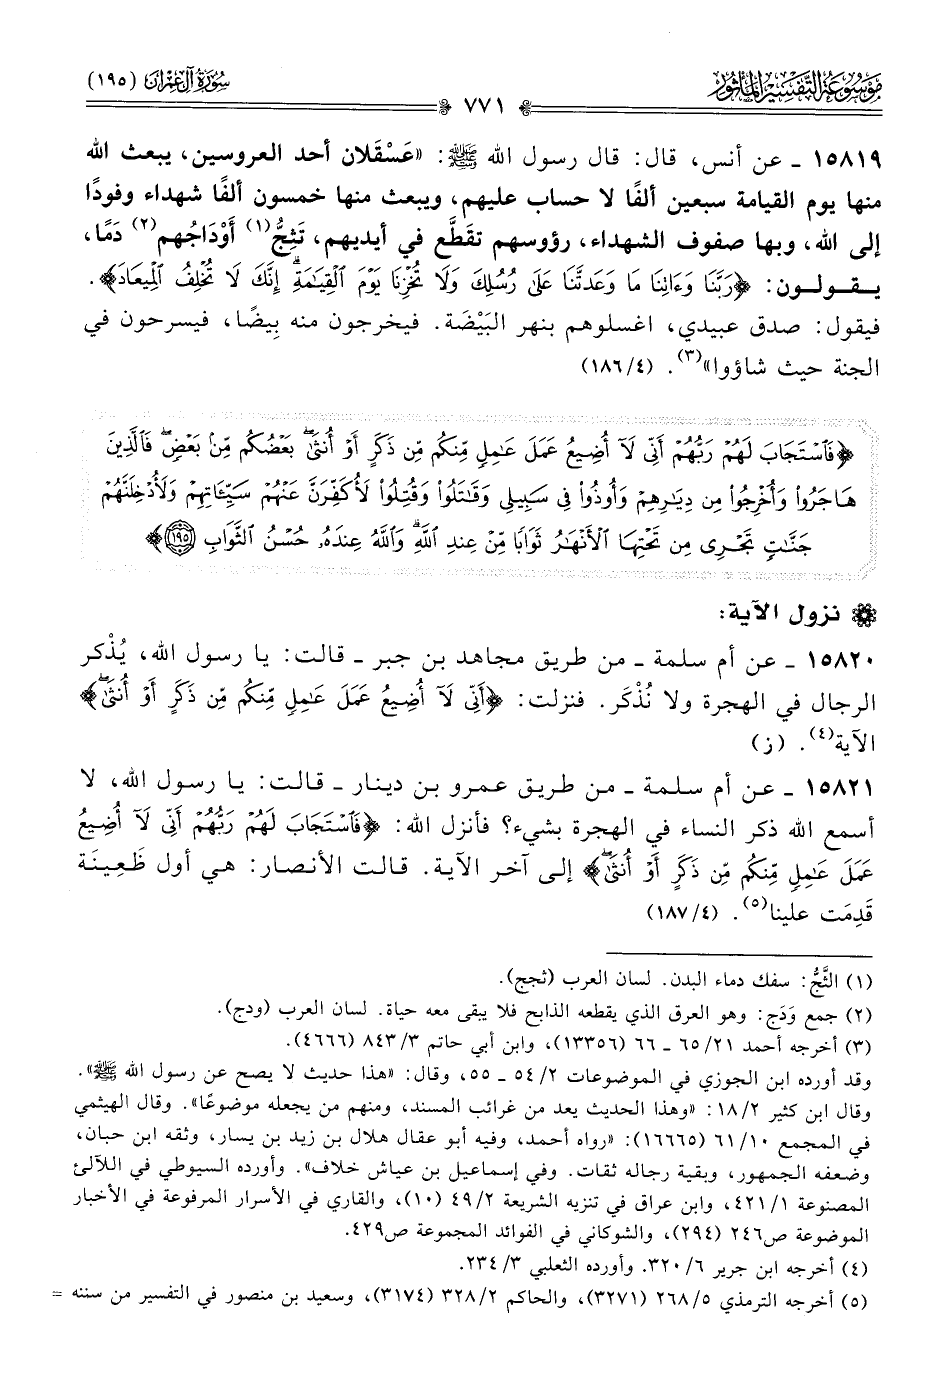 مَوْسُوعَة التَّفْسِير المَأْثُور
سُورَة آل عِمْرَان (١٩٥)
٧٧١
١٥٨١٩ ـ عن أنس، قال: قال رسول الله ﷺ: «عَسْقَلان أحد العروسين، يبعث الله
منها يوم القيامة سبعين ألفًا لا حساب عليهم، ويبعث منها خمسون ألفًا شهداء وفودًا
إلى الله، وبها صفوف الشهداء، رؤوسهم تقَطَّع في أيديهم، تَثِجُّ(١) أَوْدَاجُهم(٢) دَمًا،
يـقـولـون: ﴿رَبَّنَا وَءَاتِنَا مَا وَعَدتَّنَا عَلَىٰ رُسُلِكَ وَلَا تُخۡزِنَا يَوۡمَ ٱلۡقِيَٰمَةِۖ إِنَّكَ لَا تُخۡلِفُ ٱلۡمِيعَادَ﴾.
فيقول: صدق عبيدي، اغسلوهم بنهر البَيْضَة. فيخرجون منه بِيضًا، فيسرحون في
الجنة حيث شاؤوا»(٣). (١٨٦/٤)
﴿فَٱسۡتَجَابَ لَهُمۡ رَبُّهُمۡ أَنِّي لَآ أُضِيعُ عَمَلَ عَٰمِلٖ مِّنكُم مِّن ذَكَرٍ أَوۡ أُنثَىٰۖ بَعۡضُكُم مِّنۢ بَعۡضٖۖ فَٱلَّذِينَ
هَاجَرُواْ وَأُخۡرِجُواْ مِن دِيَٰرِهِمۡ وَأُوذُواْ فِي سَبِيلِي وَقَٰتَلُواْ وَقُتِلُواْ لَأُكَفِّرَنَّ عَنۡهُمۡ سَيِّـَٔاتِهِمۡ وَلَأُدۡخِلَنَّهُمۡ
جَنَّٰتٖ تَجۡرِي مِن تَحۡتِهَا ٱلۡأَنۡهَٰرُ ثَوَابٗا مِّنۡ عِندِ ٱللَّهِۚ وَٱللَّهُ عِندَهُۥ حُسۡنُ ٱلثَّوَابِ ١٩٥﴾
نزول الآية:
١٥٨٢٠ ـ عن أم سلمة ـ من طريق مجاهد بن جبر ـ قالت: يا رسول الله، يُذْكر
الرجال في الهجرة ولا نُذْكَر. فنزلت: ﴿أَنِّي لَآ أُضِيعُ عَمَلَ عَٰمِلٖ مِّنكُم مِّن ذَكَرٍ أَوۡ أُنثَىٰۖ﴾
الآية(٤). (ز)
١٥٨٢١ ـ عن أم سلمة ـ من طريق عمرو بن دينار ـ قالت: يا رسول الله، لا
أسمع الله ذكر النساء في الهجرة بشيء؟ فأنزل الله: ﴿فَٱسۡتَجَابَ لَهُمۡ رَبُّهُمۡ أَنِّي لَآ أُضِيعُ
عَمَلَ عَٰمِلٖ مِّنكُم مِّن ذَكَرٍ أَوۡ أُنثَىٰۖ﴾ إلى آخر الآية. قالت الأنصار: هي أول ظَعِينَة
قَدِمَت علينا(٥). (١٨٧/٤)
(١) الثَّجُّ: سفك دماء البدن. لسان العرب (ثجج).
(٢) جمع وَدَج: وهو العرق الذي يقطعه الذابح فلا يبقى معه حياة. لسان العرب (ودج).
(٣) أخرجه أحمد ٢١/ ٦٥ ـ ٦٦ (١٣٣٥٦)، وابن أبي حاتم ٣/ ٨٤٣ (٤٦٦٦).
وقد أورده ابن الجوزي في الموضوعات ٢/ ٥٤ ـ ٥٥، وقال: «هذا حديث لا يصح عن رسول الله ﷺ».
وقال ابن كثير ٢/ ١٨: «وهذا الحديث يعد من غرائب المسند، ومنهم من يجعله موضوعًا». وقال الهيثمي
في المجمع ١٠/ ٦١ (١٦٦٦٥): «رواه أحمد، وفيه أبو عقال هلال بن زيد بن يسار، وثقه ابن حبان،
وضعفه الجمهور، وبقية رجاله ثقات. وفي إسماعيل بن عياش خلاف». وأورده السيوطي في اللآلئ
المصنوعة ١/ ٤٢١، وابن عراق في تنزيه الشريعة ٢/ ٤٩ (١٠)، والقاري في الأسرار المرفوعة في الأخبار
الموضوعة ص٢٤٦ (٢٩٤)، والشوكاني في الفوائد المجموعة ص٤٢٩.
(٤) أخرجه ابن جرير ٦/ ٣٢٠. وأورده الثعلبي ٣/ ٢٣٤.
(٥) أخرجه الترمذي ٥/ ٢٦٨ (٣٢٧١)، والحاكم ٢/ ٣٢٨ (٣١٧٤)، وسعيد بن منصور في التفسير من سننه =